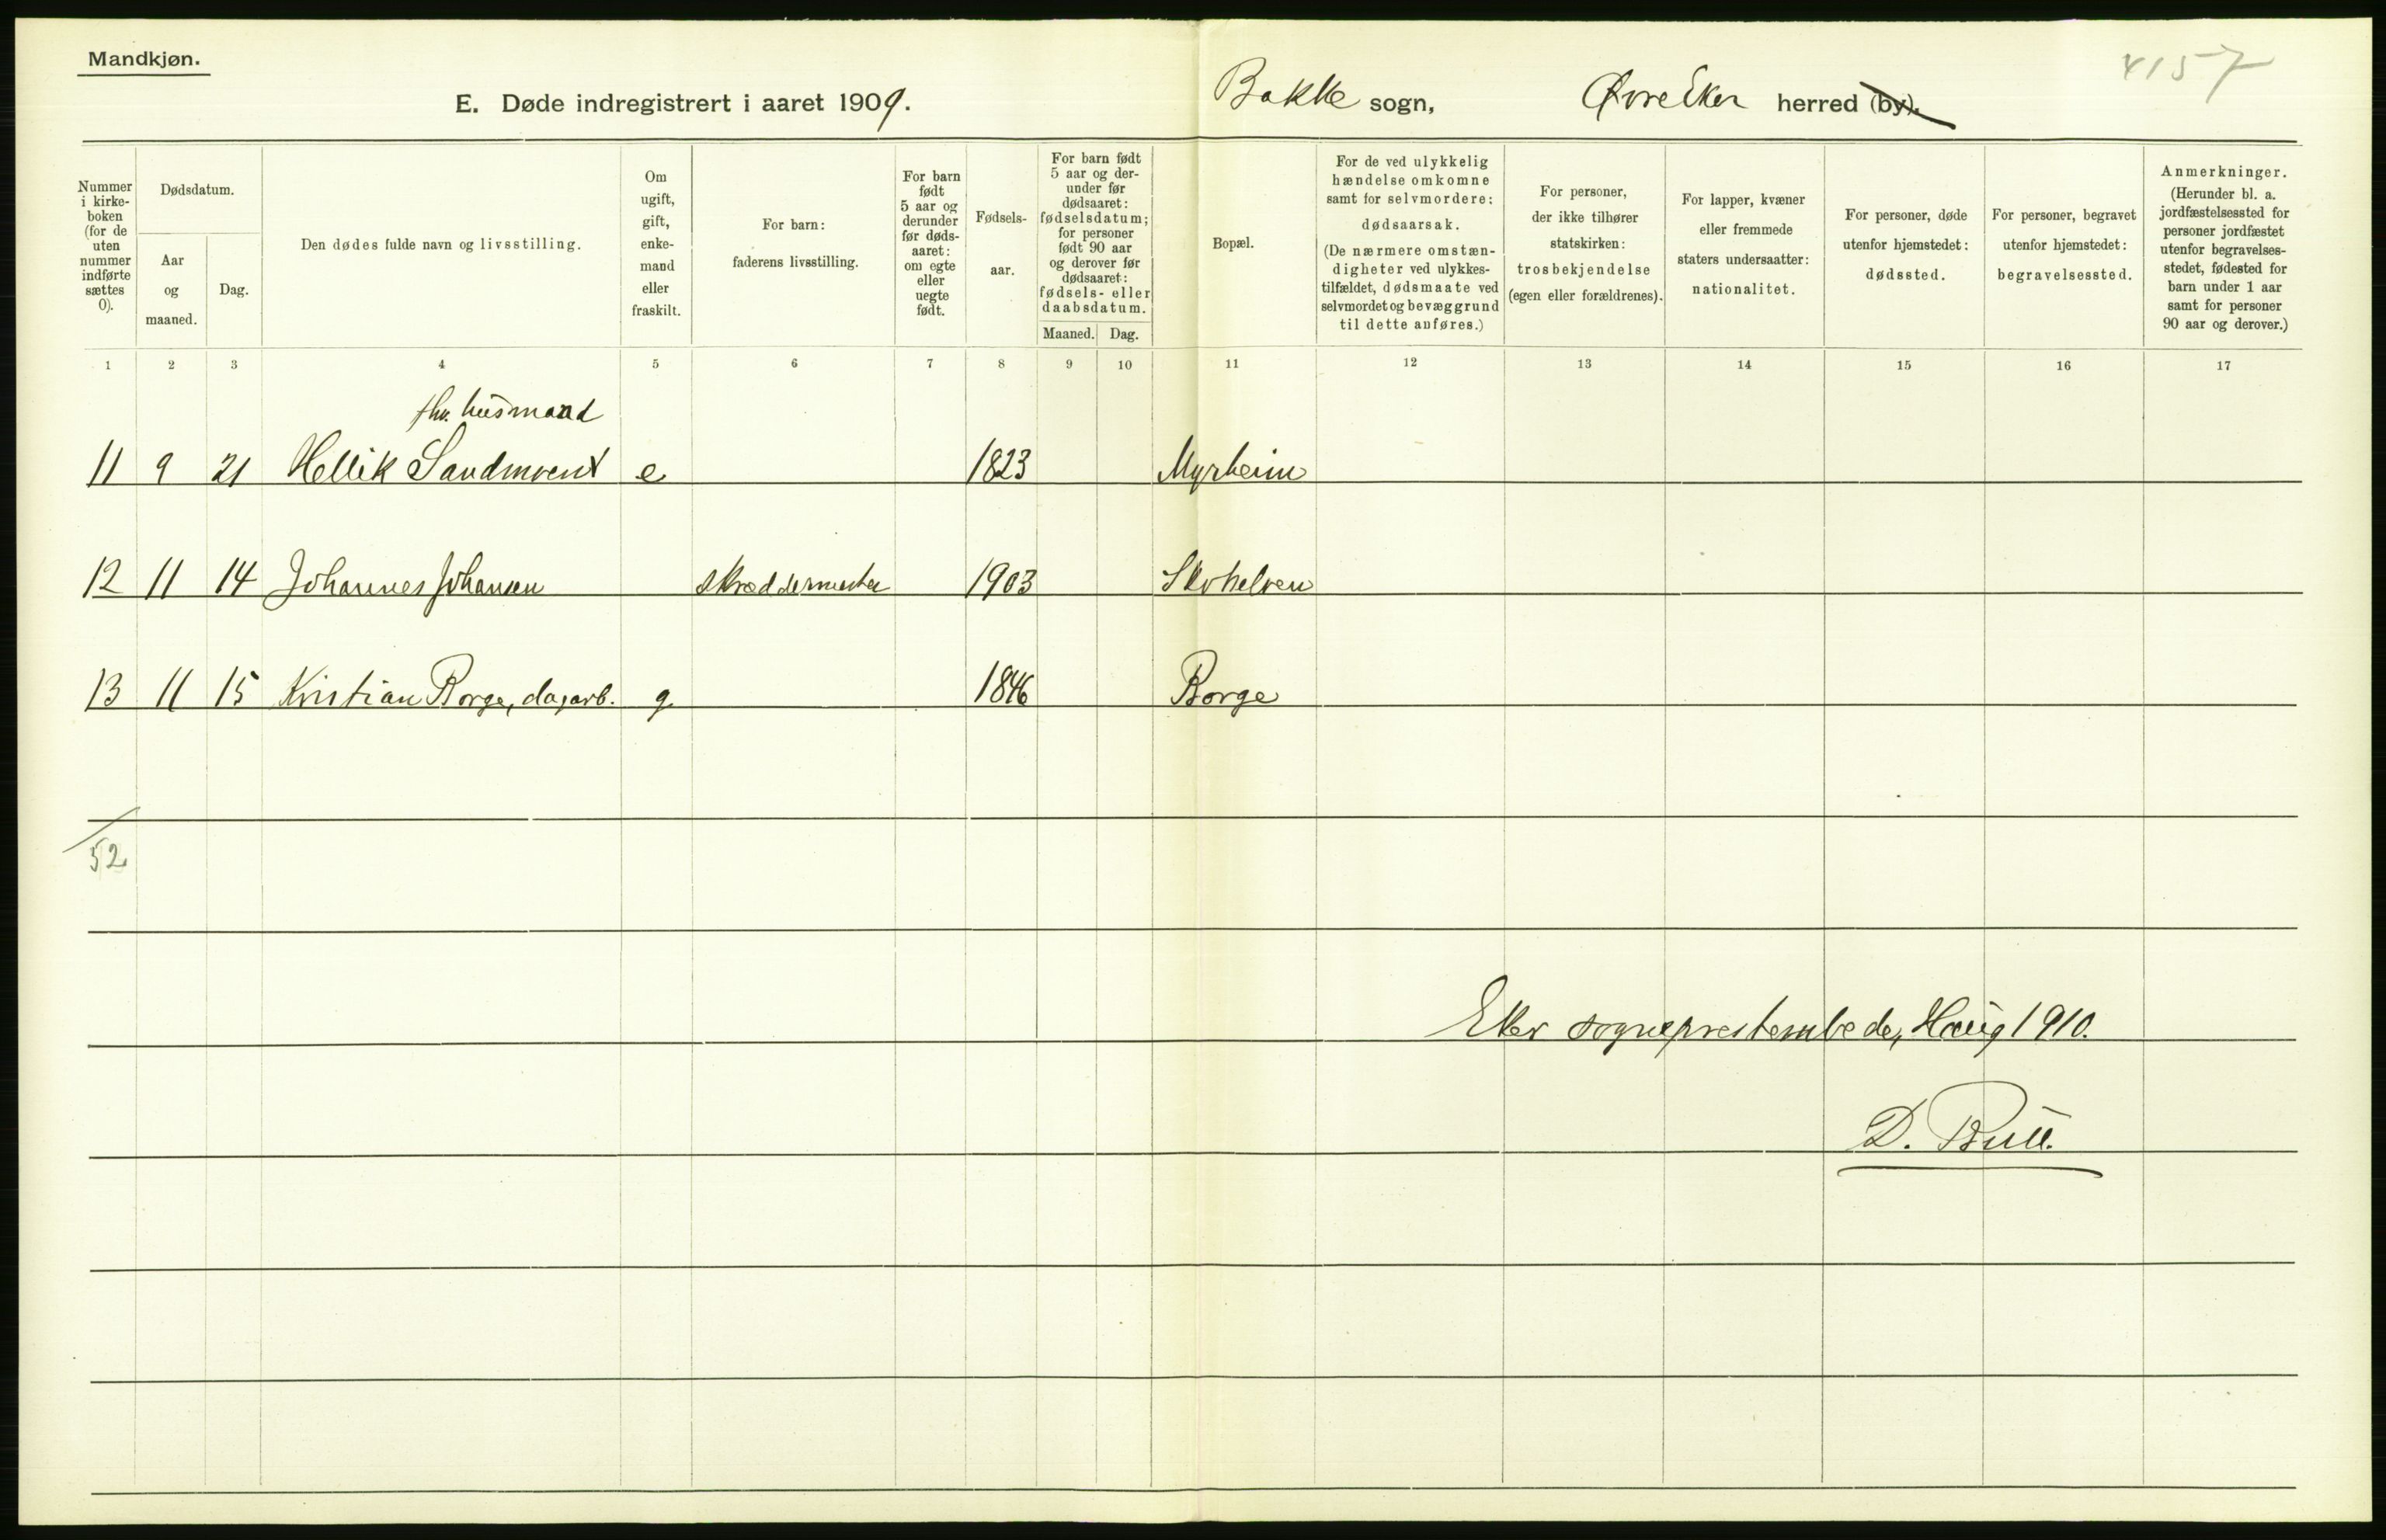 Mandkjøn.
4157
E. Døde indregistrert i aaret 1909.
Bakke sogn, Øvre Eker herred (by).
Nummer i kirke- boken (for de uten nummer indførte sættes 0).
Dødsdatum.
Aar og maaned.
Dag.
Den dødes fulde navn og livsstilling.
Om ugift, gift, enke- mand eller fraskilt.
For barn: faderens livsstilling.
For barn født 5 aar og derunder før døds- aaret: om egte eller uegte født.
Fødsels- aar.
For barn født 5 aar og der- under før dødsaaret: fødselsdatum; for personer født 90 aar og derover før dødsaaret: fødsels- eller daabsdatum.
Maaned. Dag.
Bopæl.
For de ved ulykkelig hændelse omkomne samt for selvmordere: dødsaarsak. (De nærmere omstæn- digheter ved ulykkes- tilfældet, dødsmaate ved selvmordet og bevæggrund til dette anføres.)
For personer, der ikke tilhører statskirken: trosbekjendelse (egen eller forældrenes).
For lapper, kvæner eller fremmede staters undersaatter: nationalitet.
For personer, døde utenfor hjemstedet: dødssted.
For personer, begravet utenfor hjemstedet: begravelsessted.
Anmerkninger. (Herunder bl. a. jordfæstelsessted for personer jordfæstet utenfor begravelses- stedet, fødested for barn under 1 aar samt for personer 90 aar og derover.)
1 2 3 4 5 6 7 8 9 10 11 12 13 14 15 16 17
fhv. husmand
11 9 21 Hellik Sandmoen e 1823 Myrheim
12 11 14 Johannes Johansen skræddermester 1903 Skotselven
13 11 15 Kristian Borge, dagarb. g 1846 Borge
52
Eker sogneprestembede, Haug 1910.
D. Bull.